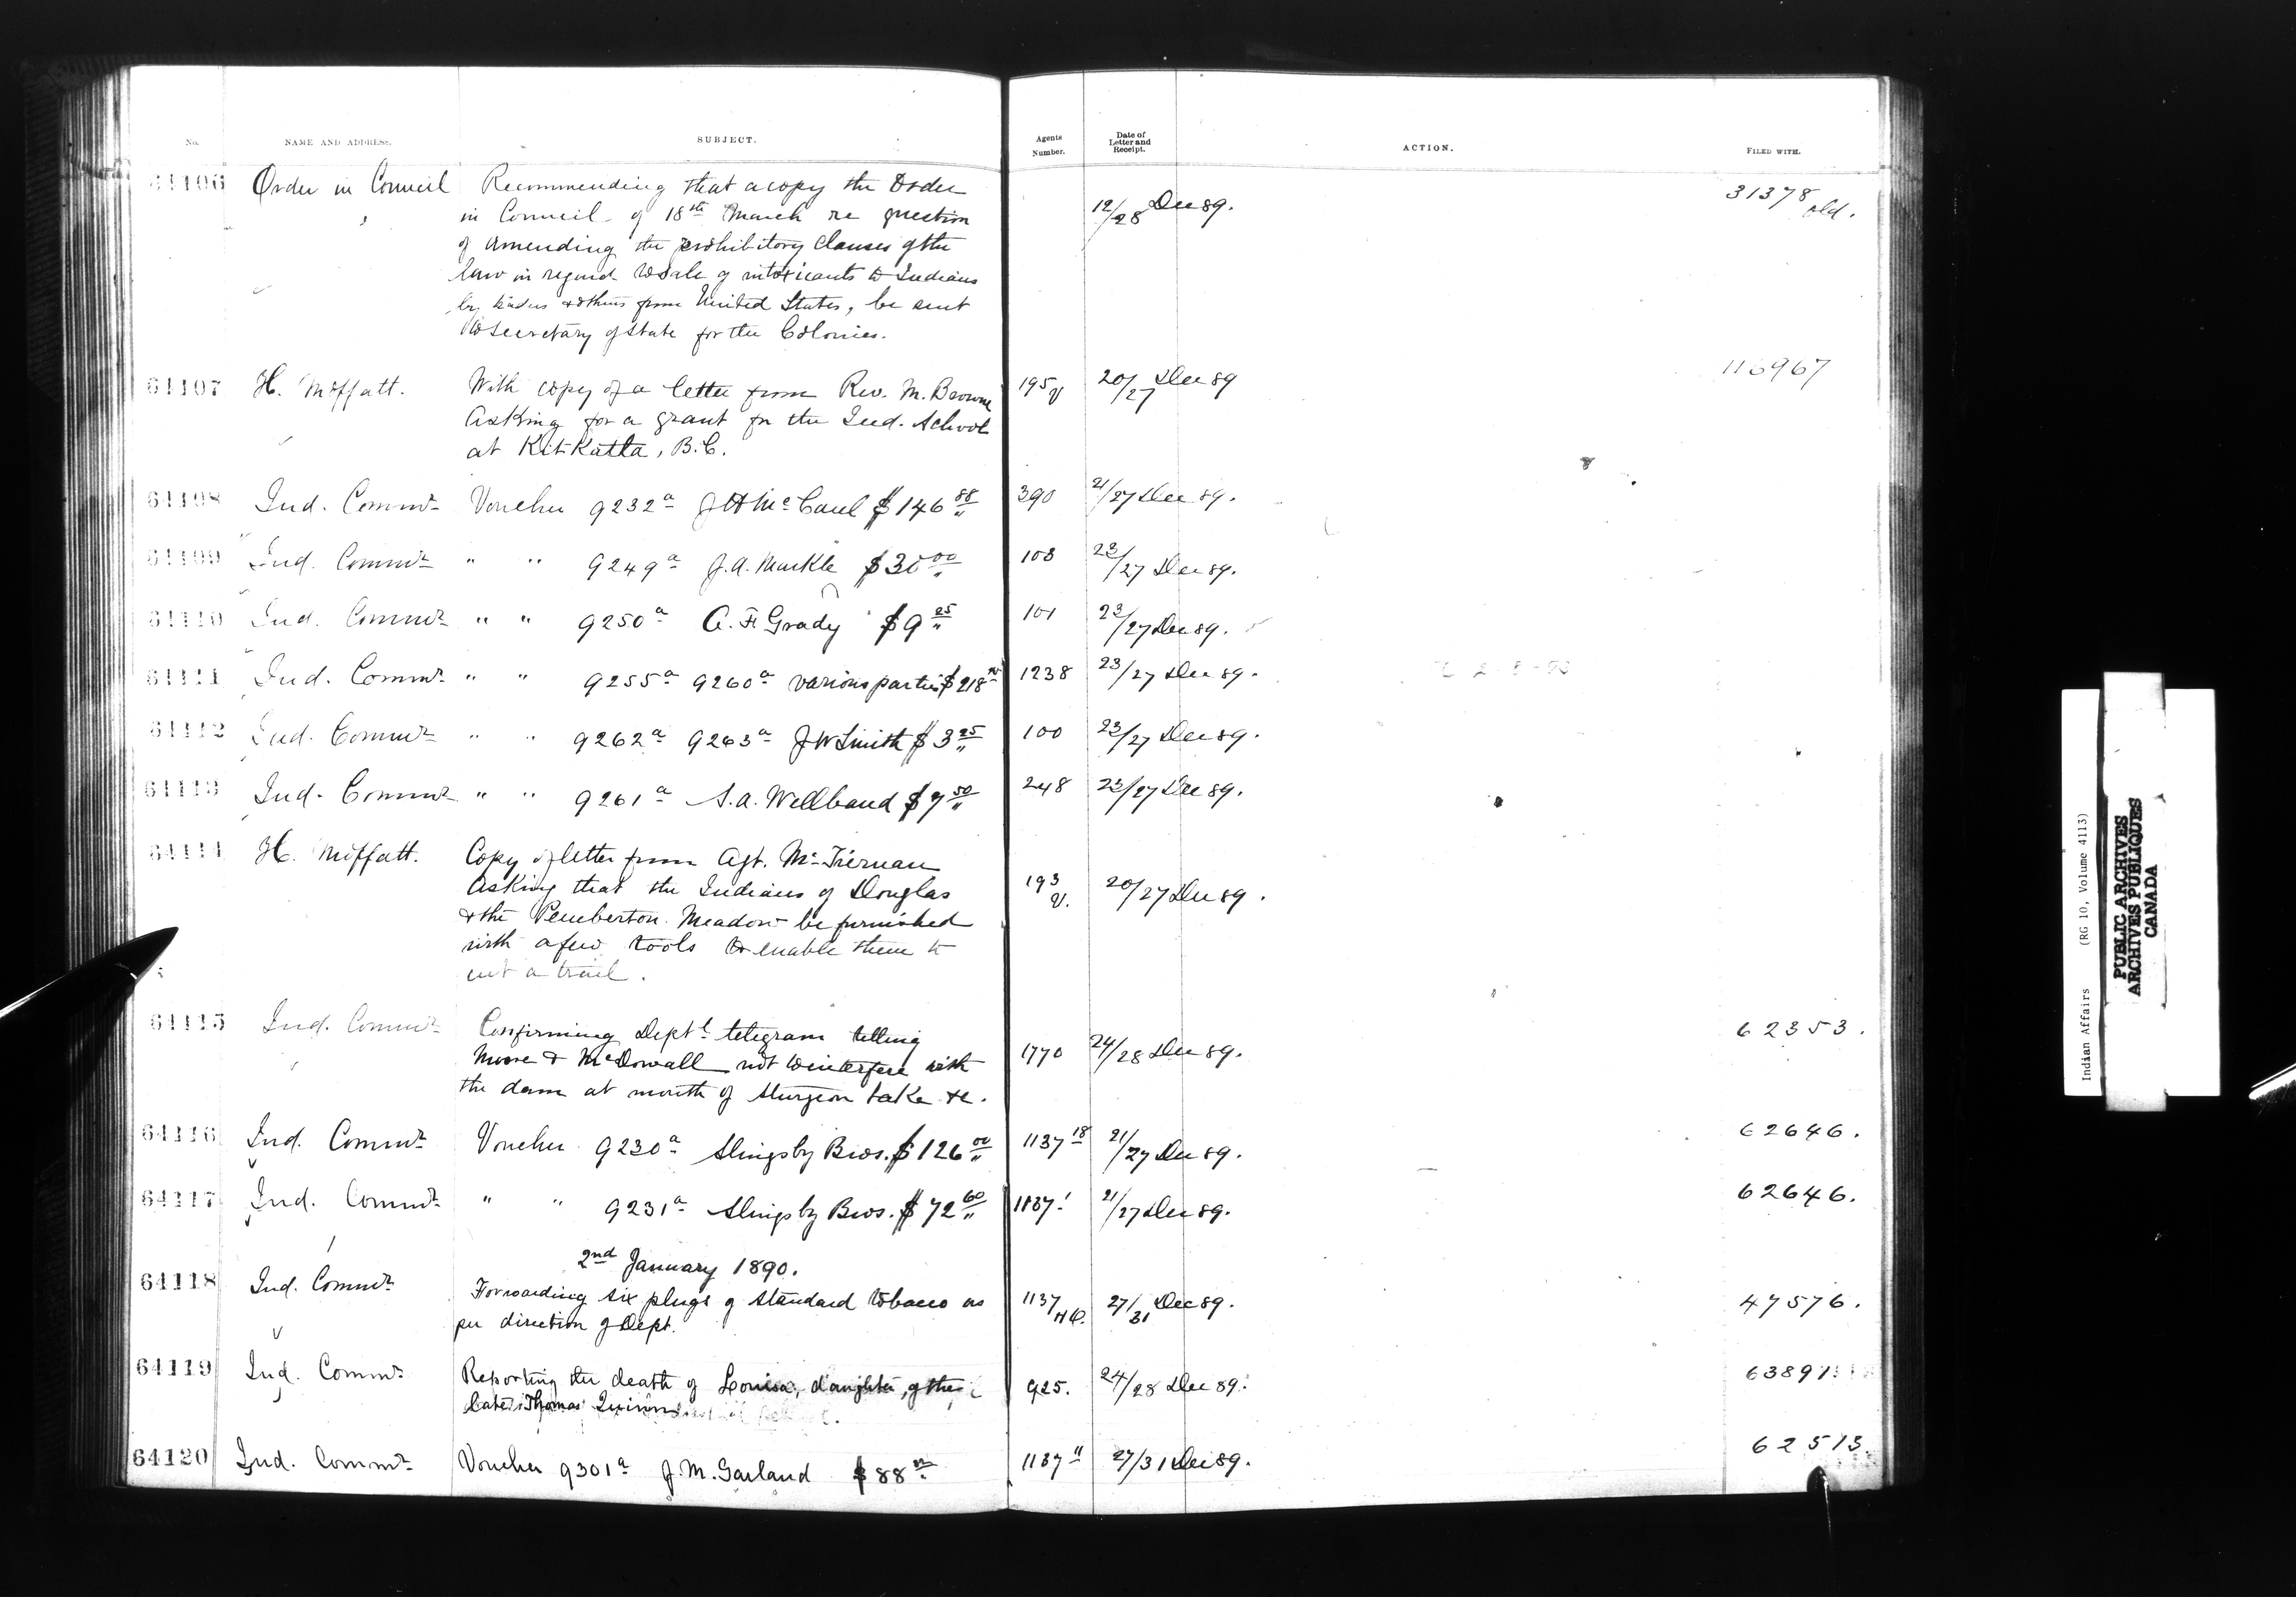 No. NAME AND ADDRESS. SUBJECT. Agents Number. Date of Letter and Receipt. ACTION. FILED WITH.
64106 Order in Council Recommending that a copy the Order 12/28 Dec 89. 31378 old.
in Council of 18th March re question
of amending the prohibitory clauses of the
law in regard to sale of intoxicants to Indians
by traders & others from United States, be sent
to Secretary of State for the Colonies.
64107 H. Moffatt. With copy of a letter from Rev. M. Browne 195 V 20/27 Dec 89 116967
asking for a grant for the Ind. School
at Kit Katta, B.C.
64108 Ind. Commr Voucher 9232a J H McCaul $146 88 390 21/27 Dec 89.
64109 Ind. Commr " " 9249a J. A. Markle $30 00 103 23/27 Dec 89.
64110 Ind. Commr " " 9250a A. F. Grady $9 25 101 23/27 Dec 89.
64111 Ind. Commr " " 9255a 9260a various parties $218 1238 23/27 Dec 89.
64112 Ind. Commr " " 9262a 9263a J W Smith $3 25 100 23/27 Dec 89.
64113 Ind. Commr " " 9261a S. A. Wellband $7 50 248 23/27 Dec 89.
64114 H. Moffatt. Copy of letter from Agt. McTiernan 193 V. 20/27 Dec 89.
asking that the Indians of Douglas
& the Pemberton Meadow be furnished
with a few tools to enable them to
cut a trail.
64115 Ind. Commr Confirming Deptl telegram telling 1770 24/28 Dec 89. 62353.
Moore & McDowall not to interfere with
the dam at mouth of Sturgeon Lake &c.
64116 Ind. Commr Voucher 9230a Slingsby Bros. $126 00 1137 18 21/27 Dec 89. 62646.
64117 Ind. Commr " " 9231a Slingsby Bros. $72 60 1137 1 21/27 Dec 89. 62646.
2nd January 1890.
64118 Ind. Commr Forwarding six plugs of standard tobacco as 1137 27/31 Dec 89. 47576.
per direction of Dept.
64119 Ind. Commr Reporting the death of Louisa, daughter, of the 925. 24/28 Dec 89. 63897
late Thomas Quinn
64120 Ind. Commr Voucher 9301a J. M. Garland $88 1137 11 27/31 Dec 89. 62513.
Indian Affairs (RG 10, Volume 4113)
PUBLIC ARCHIVES
ARCHIVES PUBLIQUES
CANADA